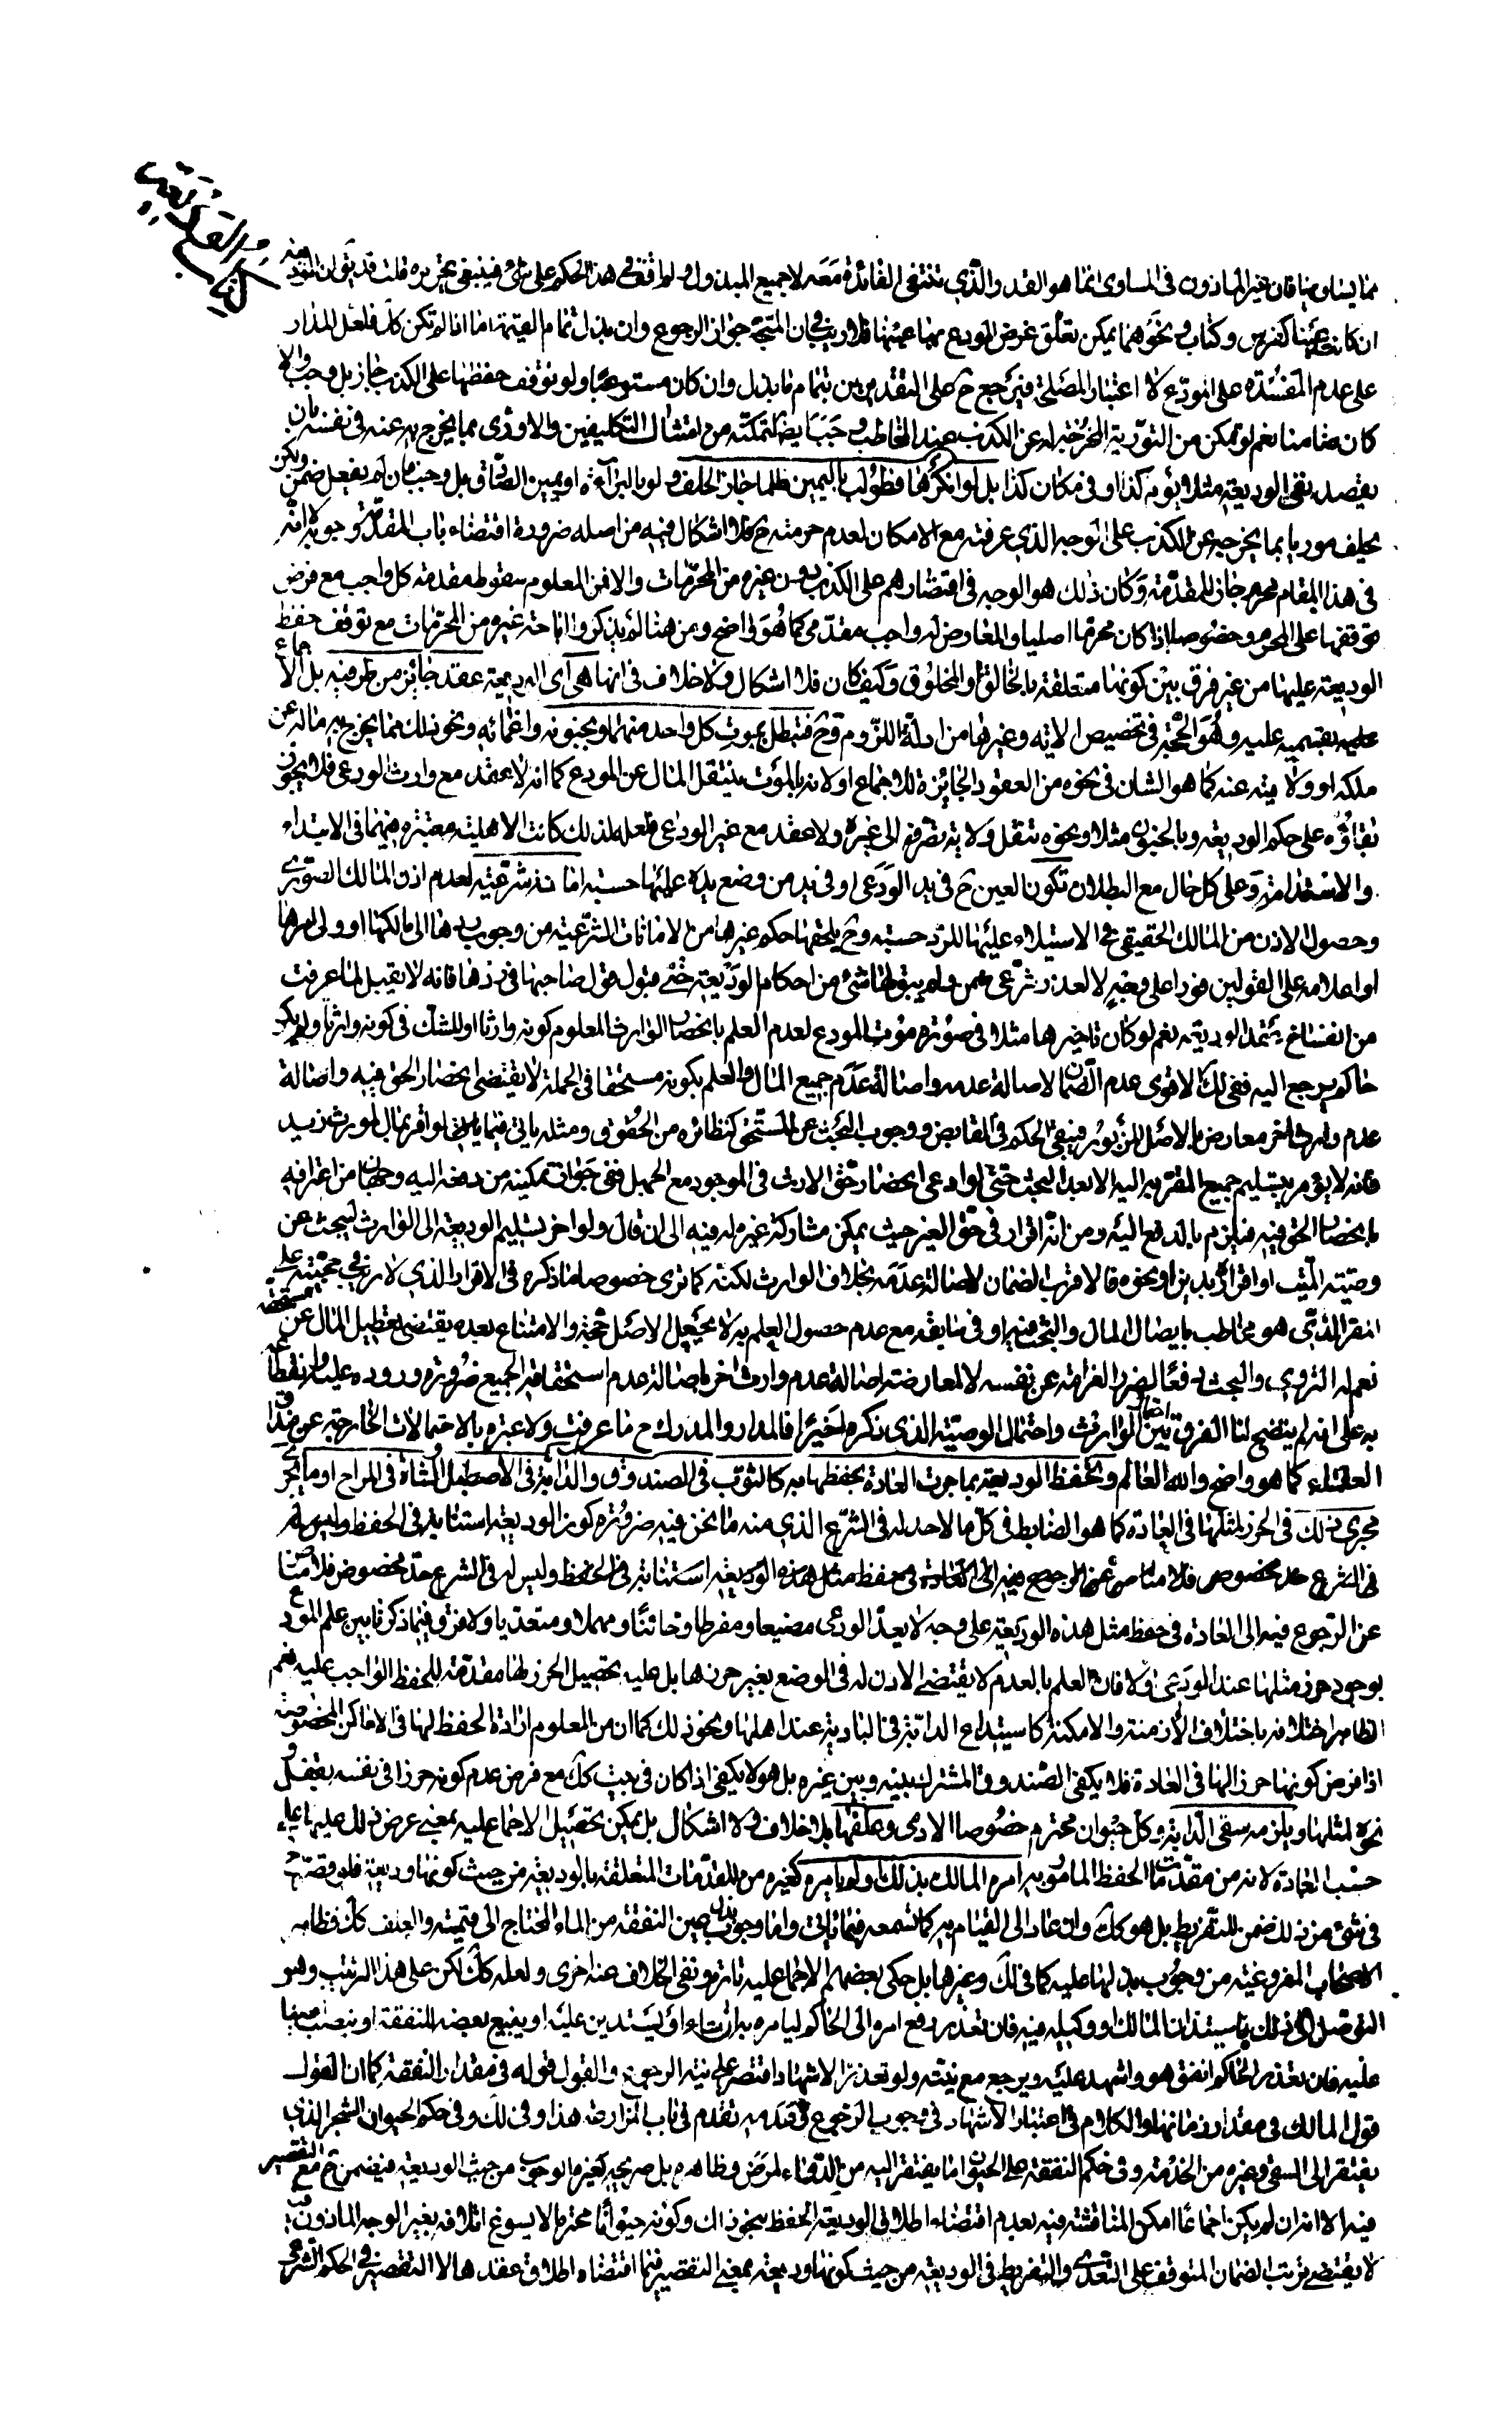 مما يساويها فان غير المأذون في المساوى انما هو القدر والذي تنتفى الفائدة معه لا جميع المبذول ولم اقف في هذا الحكم على شئ فينبغي تحريره قلت قد يق ان الوديعة
ان كانت عينا كفرس وكتاب ونحوهما يمكن تعلق غرض المودع بهما عينها فلا ريب في ان المتجه جواز الرجوع وان بذل تمام القيمة اما اذا لم تكن كك فلعل المدار
على عدم المفسدة على المودع لا اعتبار المصلحة فيرجع ح على التقديرين بتمام ما بذل وان كان مستوعبا ولو توقف حفظها على الكذب جاز بل وجب والا
كان ضامنا نعم لو تمكن من التورية المخرجة له عن الكذب عند التخاطب وجب ايضا لتمكنه من امتثال التكليفين والا ورى بما يخرج به عنه في نفسه بان
يقصد نفى الوديعة مثلا يوم كذا او في مكان كذا بل لو انكرها فطولب باليمين ظلما جاز الحلف ولو بالبرائة او يمين الصدقاق بل وجب فان لم يفعل ضمن ولكن
يحلف موريا بما يخرجه عن الكذب على الوجه الذي عرفته مع الامكان لعدم حرمته ح فلا اشكال فيه من اصله ضرورة اقتضاء باب المقدمة وجوبه لانه
في هذا المقام محرم جاز للمقدمة وكان ذلك هو الوجه في اقتصارهم على الكذب دون غيره من المحرمات والا فمن المعلوم سقوط مقدمة كل واجب مع فرض
توقفها على المحرم وخصوصا اذا كان محرما اصليا والمعارض له واجب مقدمي كما هو واضح ومن هنا لم يذكروا اباحة غيره من المحرمات مع توقف حفظ
الوديعة عليها من غير فرق بين كونها متعلقة بالخالق او المخلوق وكيف كان فلا اشكال ولا خلاف في انها هي اى الوديعة عقد جائز من طرفيه بل الاجماع
بقسميه عليه وهو الحجة في تخصيص الاية وغيرها من ادلة اللزوم وح فتبطل بموت كل واحد منهما وبجنونه واغمائه ونحو ذلك مما يخرج به ماله عن
ملكه او ولايته عنه كما هو الشان في نحوه من العقود الجائزة للاجماع او لانه بالموت ينتقل المال عن المودع كما انه لا عقد مع وارث الودعى فلا يجوز
بقاؤه على حكم الوديعة وبالجنون مثلا ونحوه تنقل ولاية تصرفه الى غيره ولا عقد مع غير الودعى ولعله لذلك كانت الاهلية معتبرة فيهما في الابتداء
والاستدامة وعلى كل حال مع البطلان تكون العين ح في يد الودعى او في يد من وضع يده عليها حسبة امانة شرعية لعدم اذن المالك الصورى
وحصول الاذن من المالك الحقيقى في الاستيلاء عليها للرد حسبة وح يلحقها حكم غيرها من الامانات الشرعية من وجوب ردها الى مالكها او ولى امرها
او اعلامه على القولين فورا على وجه لا لعذر شرعى ضمن ولم يبق لها شئ من احكام الوديعة حتى قبول قول صاحبها في ردها فانه لا يقبل لما عرفت
من انفساخ عقد الوديعة نعم لو كان تاخيرها مثلا في صورة موت المودع لعدم العلم بانحصار الوارث المعلوم كونه وارثا او للشك في كونه وارثا ولم يكن
حاكم يرجع اليه ففي لك الاقوى عدم الضمان لاصالة عدمه واصالة عدم جميع المال والعلم بكونه مستحقا في الجملة لا يقتضى انحصار الحق فيه واصالة
عدم وارث اخر معارض بالاصل المزبور فيبقى الحكم في القابض ووجوب البحث عن المستحق كنظائره من الحقوق ومثله ياتى فيما لو اقر بمال لمورث زيد
فانه لا يؤمر بتسليم جميع المقر به اليه الا بعد البحث حتى لو ادعى انحصار حق الارث في الموجود مع الجهل ففي جواز تمكينه من دفعه اليه وجهان من اعترافه
بانحصار الحق فيه فيلزم بالدفع اليه ومن انه اقرار في حق الغير حيث يمكن مشاركة غيره له فيه الى ان قال ولو اخر تسليم الوديعة الى الوارث لبحث عن
وصية الميت او اقراره بدين او نحوه فالاقرب الضمان لاصالة عدمه بخلاف الوارث لكنه كما ترى خصوصا ما ذكره في الاقرار الذي لا ريب في حجيته على
المقر الذي هو مخاطب بايصال المال والبحث فيه او في سابقه مع عدم حصول العلم به لا يجعل الاصل حجة والامتناع بعده يقتضى تعطيل المال عن مستحقه
نعم له التروى والبحث دفعا لضرر الغرامة عن نفسه لا لمعارضة اصالة عدم وارث اخر باصالة عدم استحقاقه الجميع ضرورة وروده عليه وانقطاعه
به على انه لم يتضح لنا الفرق بين الوارث واحتمال الوصية الذي ذكره اخيرا فالمدار والمدرك ح ما عرفت ولا عبرة بالاحتمالات الخارجة عن مذاق
العقلاء كما هو واضح والله العالم وتحفظ الوديعة بما جرت العادة بحفظها به كالثوب في الصندوق والدابة في الاصطبل والشاة في المراح او ما يجرى
مجرى ذلك في الحرز لمثلها في العادة كما هو الضابط في كل ما لا حد له في الشرع الذي منه ما نحن فيه ضرورة كون الوديعة استنابة في الحفظ وليس له
في الشرع حد مخصوص فلا مناص عن الرجوع فيه الى العادة في حفظ مثل هذه الوديعة استنابة في الحفظ وليس له في الشرع حد مخصوص فلا مناص
عن الرجوع فيه الى العادة في حفظ مثل هذه الوديعة على وجه لا يعد الودعى مضيعا ومفرطا وخائنا ومهملا ومتعديا ولا فرق فيما ذكرنا بين علم المودع
بوجود حرز مثلها عند الودعى ولا فان العلم بالعدم لا يقتضى الاذن له في الوضع بغير حرزها بل عليه تحصيل الحرز لها مقدمة للحفظ الواجب عليه نعم
الظاهر اختلافه باختلاف الازمنة والامكنة كاستيداع الدابة في البادية عند اهلها ونحو ذلك كما ان من المعلوم ارادة الحفظ لها في الاماكن المخصوصة
اذا فرض كونها حرزا لها في العادة فلا يكفى الصندوق المشترك بينه وبين غيره بل هو لا يكفى اذا كان في بيت كك مع فرض عدم كونه حرزا في نفسه بقفل
ونحوه لمثلها ويلزمه سقى الدابة وكل حيوان محترم خصوصا الادمى وعلفها بلا خلاف ولا اشكال بل يمكن تحصيل الاجماع عليه بمعنى عرض ذلك عليها
حسب العادة لانه من مقدمات الحفظ المامور به امره المالك بذلك او لم يامره كغيره من المقدمات المتعلقة بالوديعة من حيث كونها وديعة فلو قصر ح
في شئ من ذلك ضمن للتفريط بل هو كك وان عاد الى القيام به كما تسمعه فيما ياتى واما وجوب بذل عين النفقة من الماء المحتاج الى قيمته والعلف كك فظاهر
الاصحاب المفروغية من وجوب بذلها عليه كما في لك وغيرها بل حكى بعضهم الاجماع عليه تارة ونفى الخلاف عنه اخرى ولعله كك لكن على هذا الترتيب وهو
التوصل الى ذلك باستيذان المالك او وكيله فيه فان تعذر رفع امره الى الحاكم ليامره به ان شاء او يستدين عليه او يبيع بعضه للنفقة او ينصب امينا
عليه فان تعذر الحاكم انفق هو واشهد عليه ويرجع مع نيته ولو تعذر الاشهاد اقتصر على نية الرجوع والقول قوله في مقدار النفقة كما ان القول
قول المالك في مقدار زمانها والكلام في اعتبار الاشهاد في وجوب الرجوع وعدمه تقدم في باب المزارعة هذا وفي لك وفي حكم الحيوان الشجر الذي
يفتقر الى السقى وغيره من الخدمة وفي حكم النفقة على الحيوان ما يفتقر اليه من الدواء لمرض وظاهره بل صريحه كغيره الوجوب من حيث الوديعة فيضمن ح مع التقصير
فيه الا انه ان لم يكن اجماعا امكن المناقشة فيه بعدم اقتضاء اطلاق الوديعة الحفظ بنحو ذلك وكونه حيوانا محترما لا يسوغ اتلافه بغير الوجه الماذون فيه
لا يقتضى ترتب الضمان المتوقف على التعدى والتفريط في الوديعة من حيث كونها وديعة بمعنى التقصير فيما اقتضاه اطلاق عقدها لا التقصير في الحكم الشرعى